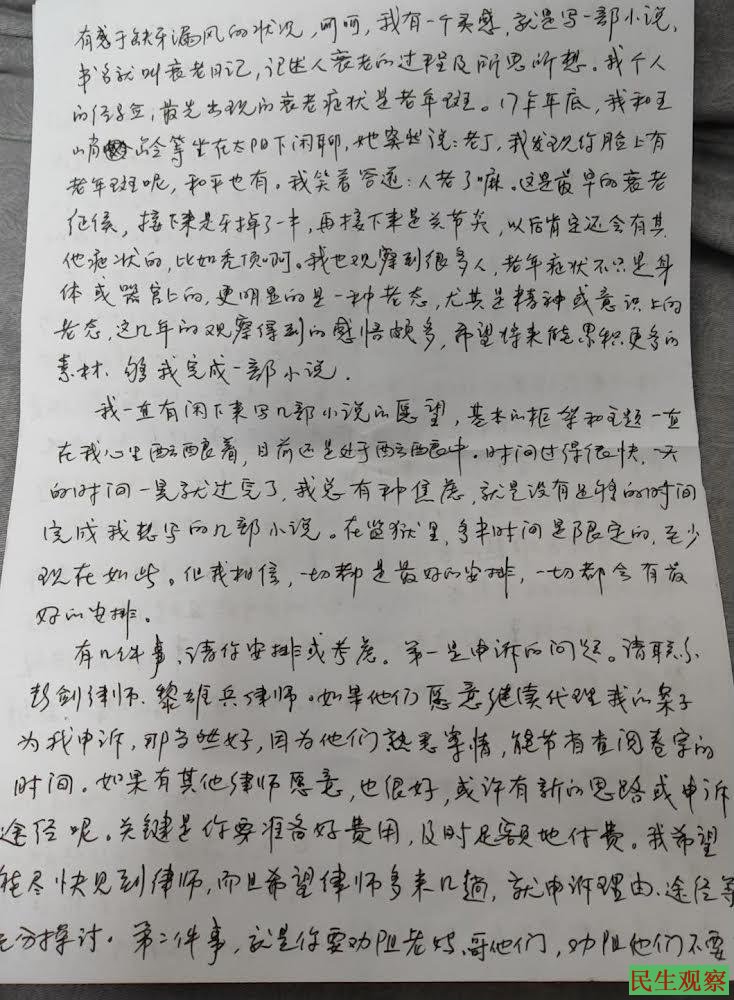 有感于缺牙漏风的状况，呵呵，我有一个灵感，就是写一部小说，
书名就叫衰老日记，记述人衰老的过程及所思所想。我个人
的征兆，最先出现的衰老症状是老年斑。17年年底，我和王
峭岭等坐在太阳下闲聊，她突然说：老丁，我发现你脸上有
老年斑呢，和平也有。我笑着答道：人老了嘛。这是最早的衰老
征候，接下来是牙掉了一半，再接下来是关节炎，以后肯定还会有其
他症状的，比如秃顶啊。我也观察到很多人，老年症状不只是身
体或器官上的，更明显的是一种老态，尤其是精神或意识上的
老态，这几年的观察得到的感悟颇多，希望将来能累积更多的
素材，够我完成一部小说。
我一直有闲下来写几部小说的愿望，基本的框架和主题一直
在我心里酝酿着，目前还是处于酝酿中。时间过得很快，一天
的时间一晃就过完了，我总有种焦虑，就是没有足够的时间
完成我想写的几部小说。在监狱里，多半时间是限定的，至少
现在如此。但我相信，一切都是最好的安排，一切都会有最
好的安排。
有几件事，请你安排或考虑。第一是申诉的问题。请联系
彭剑律师、黎雄兵律师。如果他们愿意继续代理我的案子
为我申诉，那当然好，因为他们熟悉案情，能节省查阅卷宗的
时间。如果有其他律师愿意，也很好，或许有新的思路或申诉
途径呢。关键是你要准备好费用，及时足额地付费。我希望
能尽快见到律师，而且希望律师多来几趟，就申诉理由、途径等
充分探讨。第二件事，就是你要劝阻老姑、哥他们，劝阻他们不要
民生观察